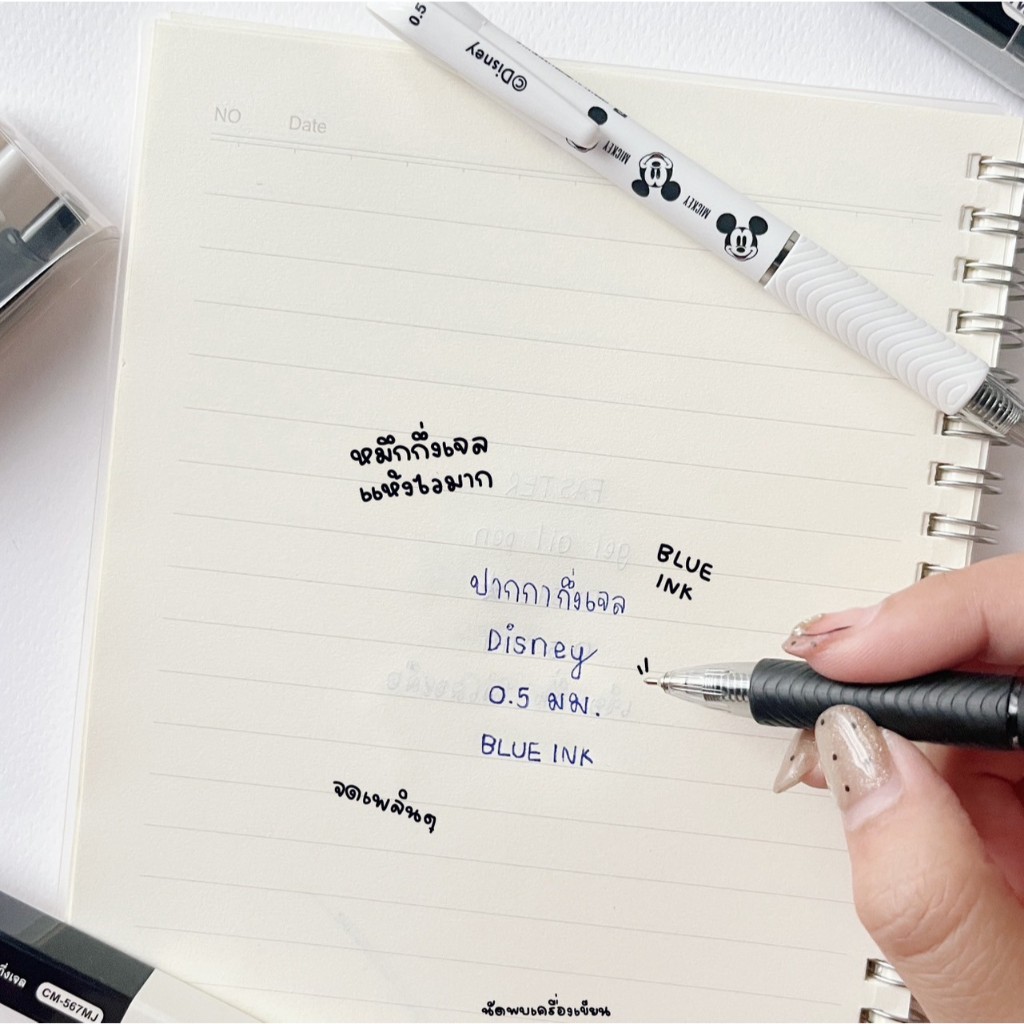 0.5
©Disney
MICKEY
MICKEY
NO Date
หมึกกึ่งเจล
แห้งไวมาก
BLUE
INK
ปากกากึ่งเจล
Disney
0.5 มม.
BLUE INK
จดเพลินๆ
กึ่งเจล CM-567MJ
นัดพบเครื่องเขียน